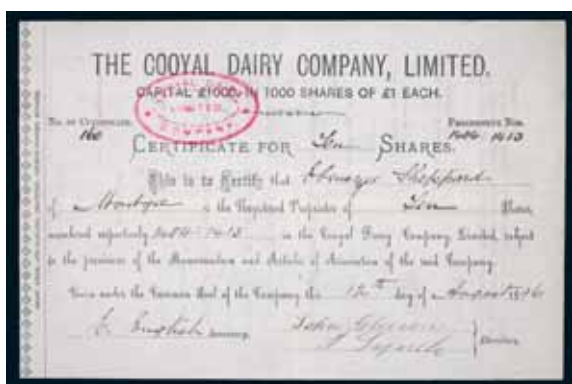 THE COOYAL DAIRY COMPANY, LIMITED.
CAPITAL £1000, IN 1000 SHARES OF £1 EACH.
LIMITED
COMPANY
No. of Certificate. Progressive Nos.
160 1404 1413
CERTIFICATE FOR Ten SHARES.
This is to Certify that Ebenezer Sheppard
of is the Registered Proprietor of Ten Shares,
numbered respectively 1404-1413 in the Cooyal Dairy Company Limited, subject
to the provisions of the Memorandum and Articles of Association of the said Company.
Given under the Common Seal of the Company this 12th day of August
C. English Secretary. John
Directors.